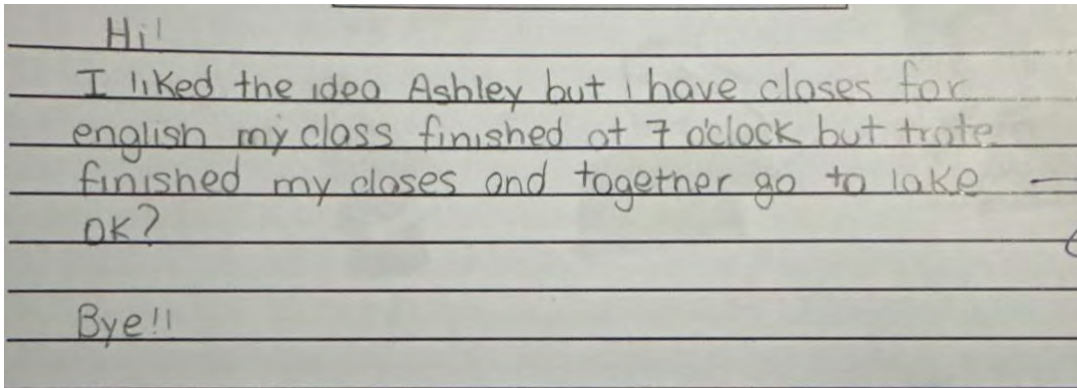 Hi!
I liked the idea Ashley but I have clases for
english my class finished at 7 o'clock but trate
finished my clases and together go to lake
OK?
Bye!!